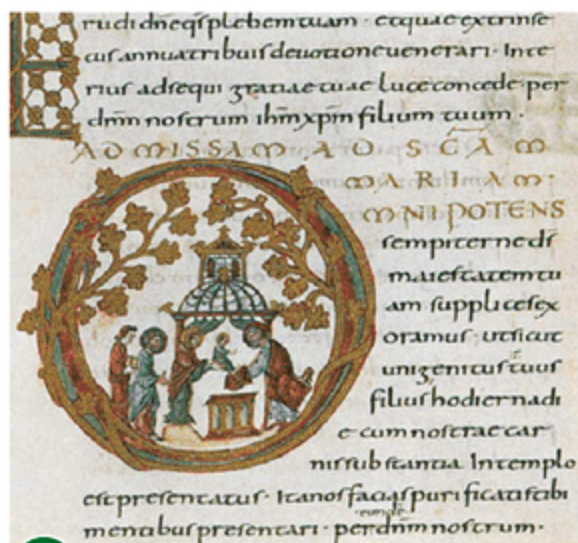 rudi dn̄e q̄s plebem tuam · et quae extrinse
cus annua tribuis devotione venerari · Inte
rius adsequi gratiae tuae luce concede per
dn̄m nostrum ih̄m xp̄m filium tuum ·
AD MISSAM · AD SC̄AM
MARIAM ·
OMNIPOTENS
sempiterne d̄s
maiestatem tu
am supplices ex
oramus · ut sicut
unigenitus tuus
filius hodierna di
e cum nostrae car
nis substantia In templo
est presentatus · Ita nos facias purificatis tibi
mentibus presentari · per dn̄m nostrum ·